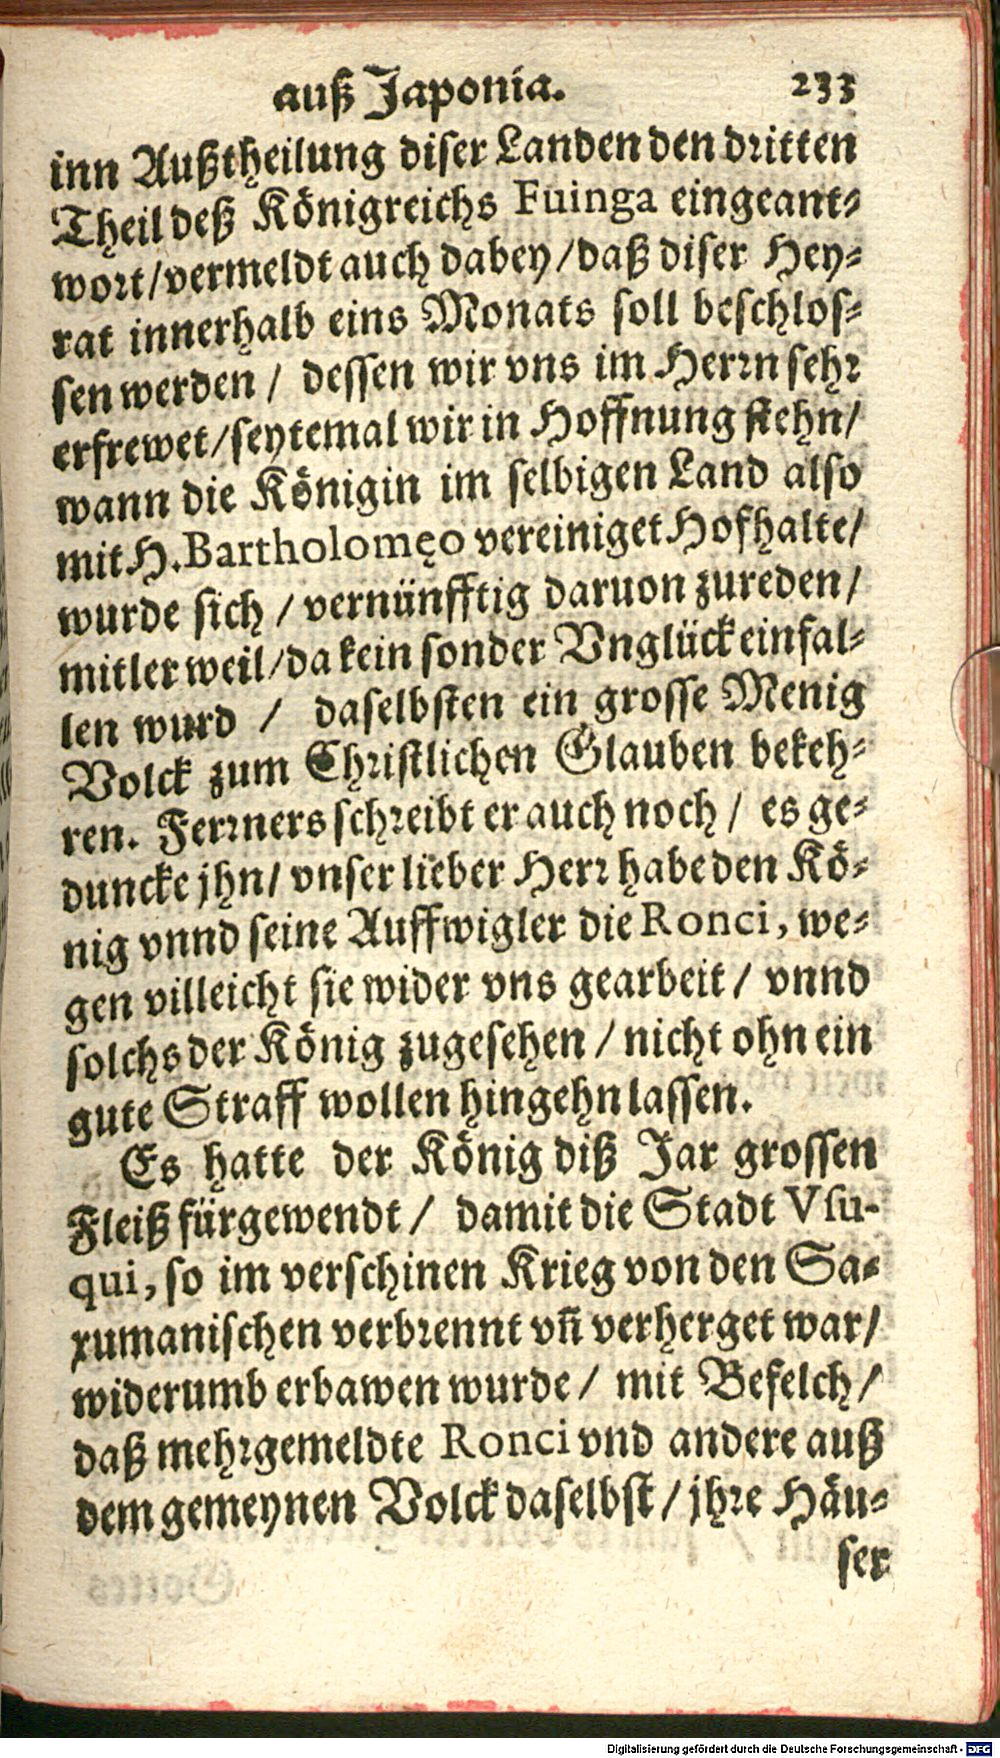 auß Japonia. 233
inn Außtheilung diser Landen den dritten
Theil deß Königreichs Fuinga eingeant-
wort/vermeldt auch dabey/daß diser Hey-
rat innerhalb eins Monats soll beschlos-
sen werden / dessen wir vns im Herrn sehr
erfrewet/seytemal wir in Hoffnung stehn/
wann die Königin im selbigen Land also
mit H.Bartholomęo vereiniget Hofhalte/
wurde sich / vernünfftig daruon zureden/
mitler weil/da kein sonder Vnglück einfal-
len wurd / daselbsten ein grosse Menig
Volck zum Christlichen Glauben bekeh-
ren. Ferrners schreibt er auch noch / es ge-
duncke jhn/ vnser lieber Herr habe den Kö-
nig vnnd seine Auffwigler die Ronci, we-
gen villeicht sie wider vns gearbeit / vnnd
solchs der König zugesehen / nicht ohn ein
gute Straff wollen hingehn lassen.
Es hatte der König diß Jar grossen
Fleiß fürgewendt / damit die Stadt Vsu-
qui, so im verschinen Krieg von den Sa-
xumanischen verbrennt vn̄ verherget war/
widerumb erbawen wurde / mit Befelch/
daß mehrgemeldte Ronci vnd andere auß
dem gemeynen Volck daselbst / jhre Häu-
ser
Digitalisierung gefördert durch die Deutsche Forschungsgemeinschaft - DFG